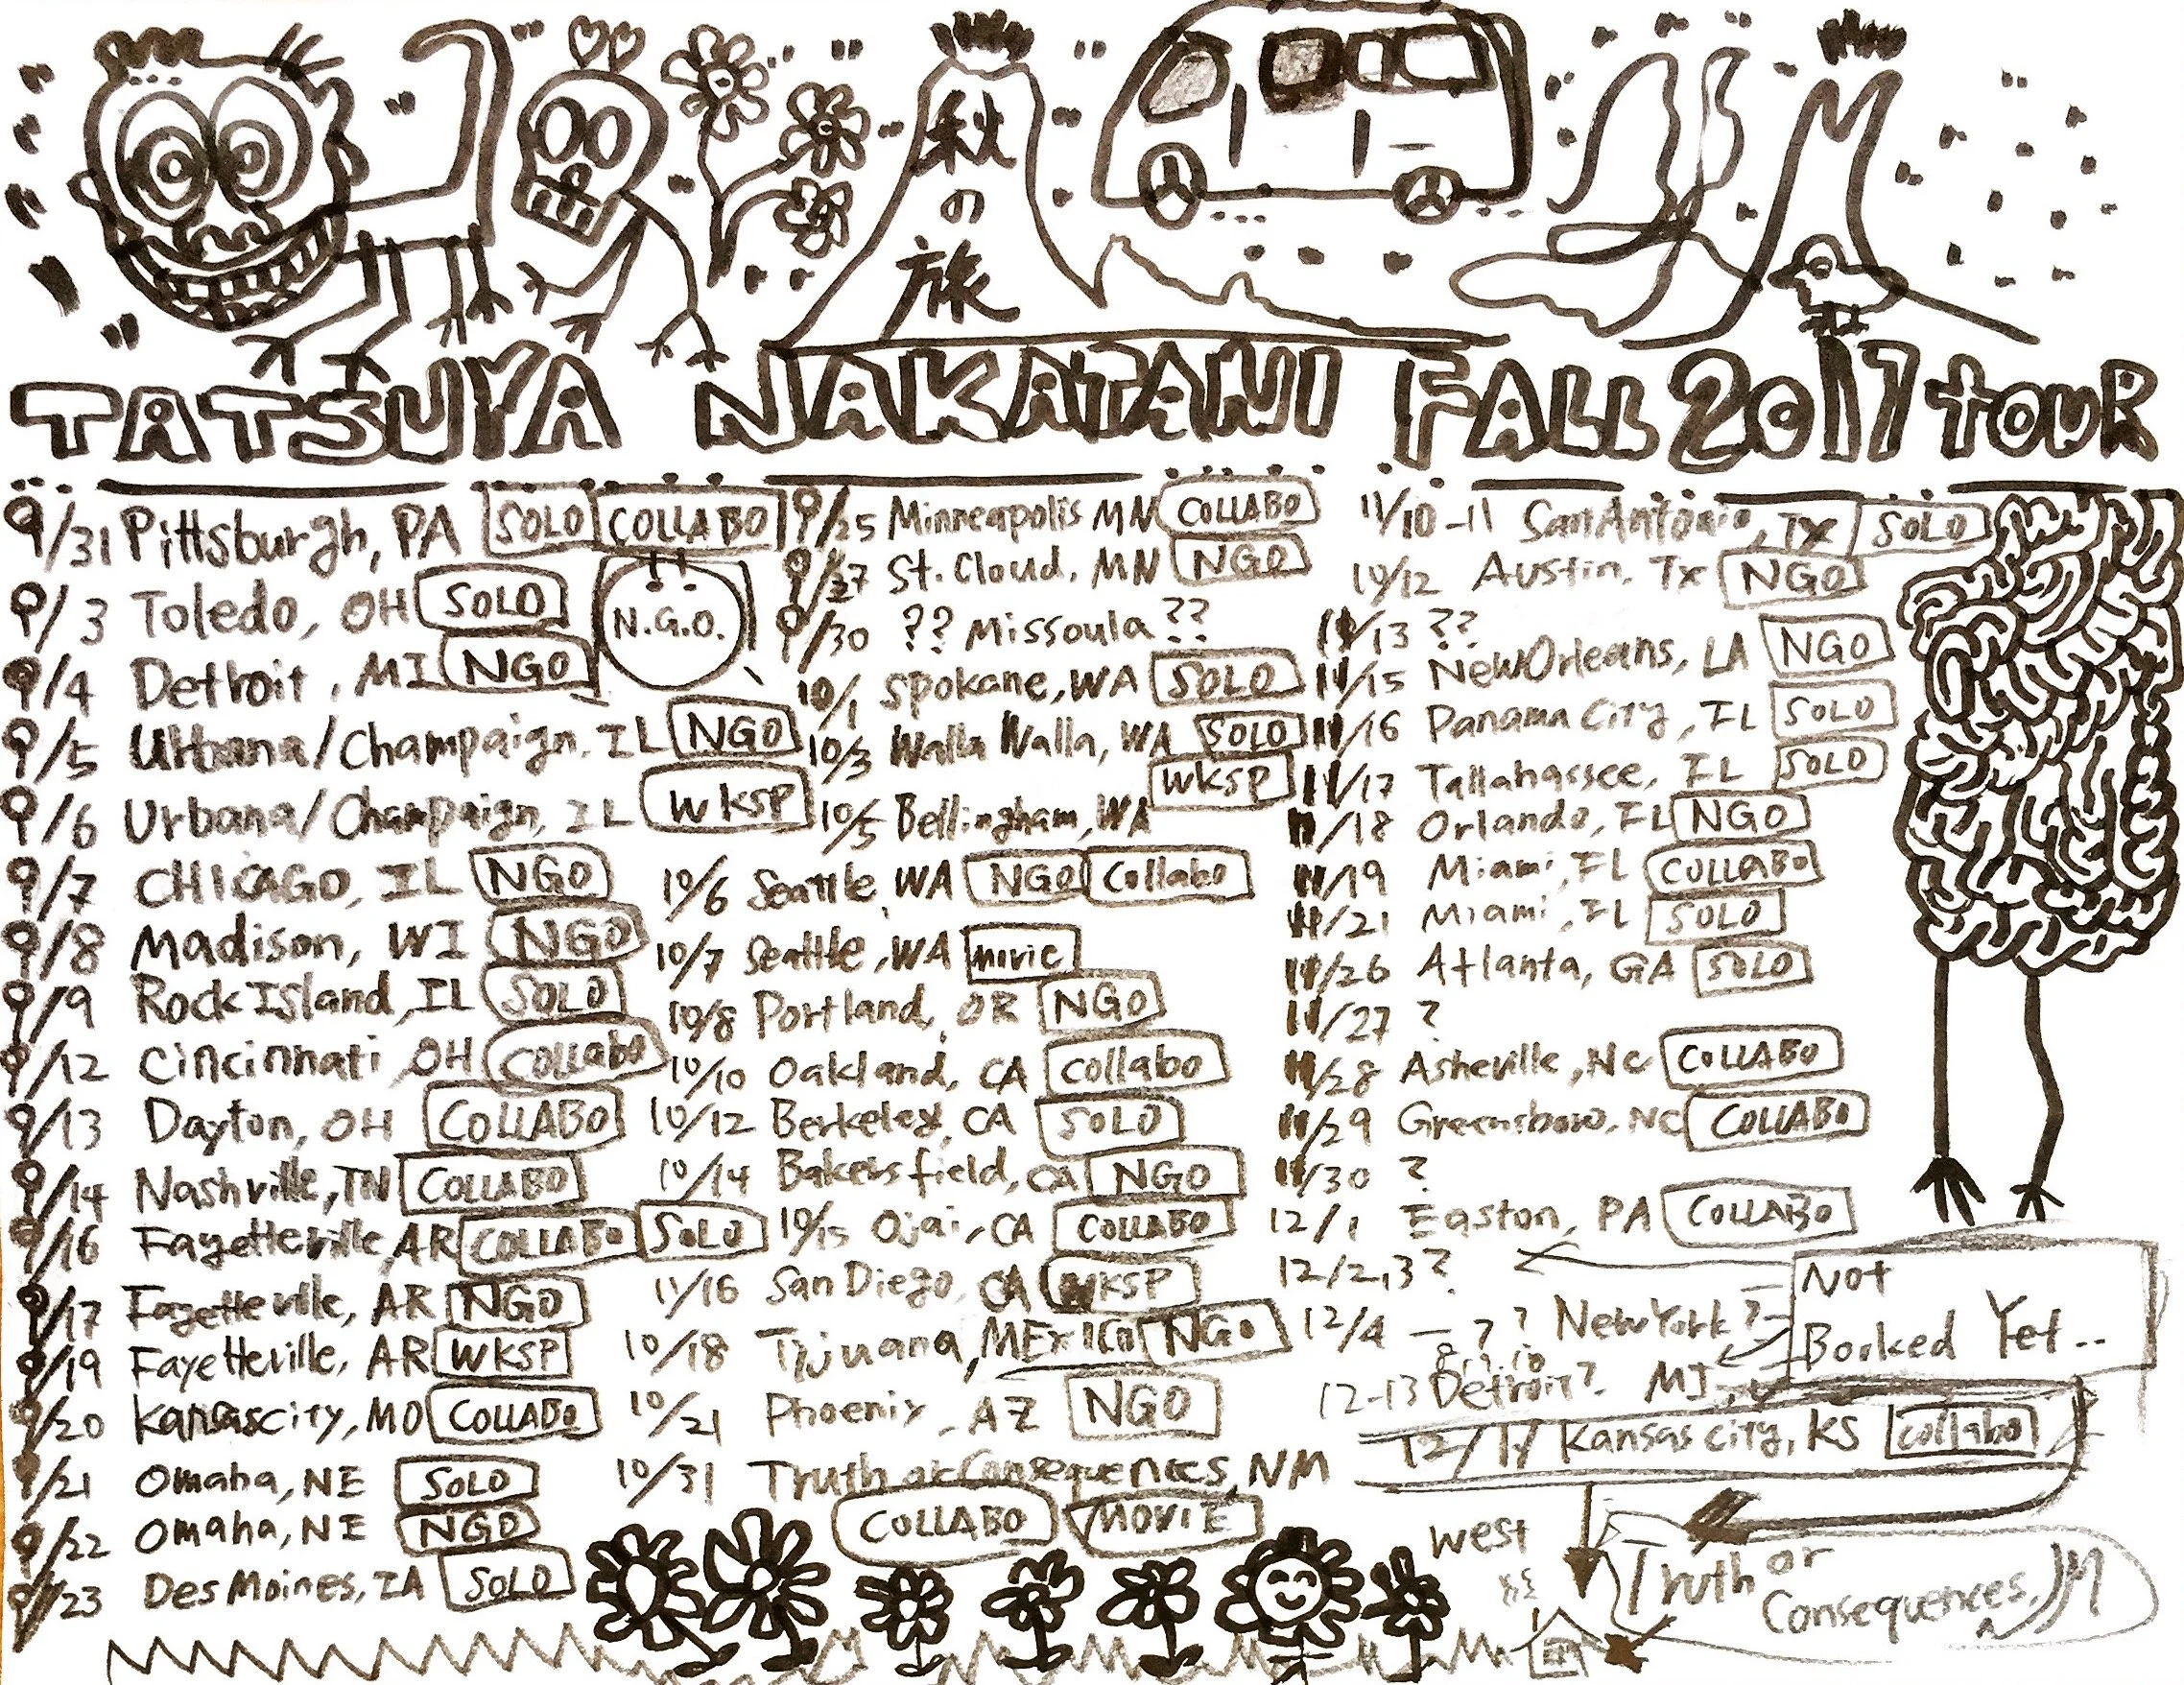 秋
の
旅
TATSUYA NAKATANI FALL 2017 TOUR
9/31 Pittsburgh, PA SOLO COLLABO
9/3 Toledo, OH SOLO
N.G.O.
9/4 Detroit, MI NGO
9/5 Urbana/Champaign, IL NGO
9/6 Urbana/Champaign, IL WKSP
9/7 CHICAGO, IL NGO
9/8 Madison, WI NGO
9/9 Rock Island, IL SOLO
9/12 Cincinnati, OH Collabo
9/13 Dayton, OH COLLABO
9/14 Nashville, TN COLLABO
9/16 Fayetteville, AR COLLABO SOLO
9/17 Fayetteville, AR NGO
9/19 Fayetteville, AR WKSP
9/20 Kansascity, MO COLLABO
9/21 Omaha, NE SOLO
9/22 Omaha, NE NGO
9/23 Des Moines, IA SOLO
9/25 Minneapolis MN COLLABO
9/27 St. Cloud, MN NGO
9/30 ?? Missoula ??
10/1 Spokane, WA SOLO
10/3 Walla Walla, WA SOLO
10/5 Bellingham, WA WKSP
10/6 Seattle, WA NGO Collabo
10/7 Seattle, WA movie
10/8 Portland, OR NGO
10/10 Oakland, CA Collabo
10/12 Berkeley, CA SOLO
10/14 Bakersfield, CA NGO
10/15 Ojai, CA COLLABO
11/16 San Diego, CA WKSP
10/18 Tijuana, MEXICO NGO
10/21 Phoenix, AZ NGO
10/31 Truth or Consequences, NM
COLLABO MOVIE
11/10-11 San Antonio, TX SOLO
10/12 Austin, TX NGO
11/13 ??
11/15 New Orleans, LA NGO
11/16 Panama City, FL SOLO
11/17 Tallahassee, FL SOLO
11/18 Orlando, FL NGO
11/19 Miami, FL COLLABO
11/21 Miami, FL SOLO
11/26 Atlanta, GA SOLO
11/27 ?
11/28 Asheville, NC COLLABO
11/29 Greensboro, NC COLLABO
11/30 ?
12/1 Easton, PA COLLABO
12/2,3?
12/4 — ? ? New York?
12-13 Detroit? MI
Not
Booked Yet..
12/17 Kansas city, KS collabo
West
Truth or
Consequences, NM